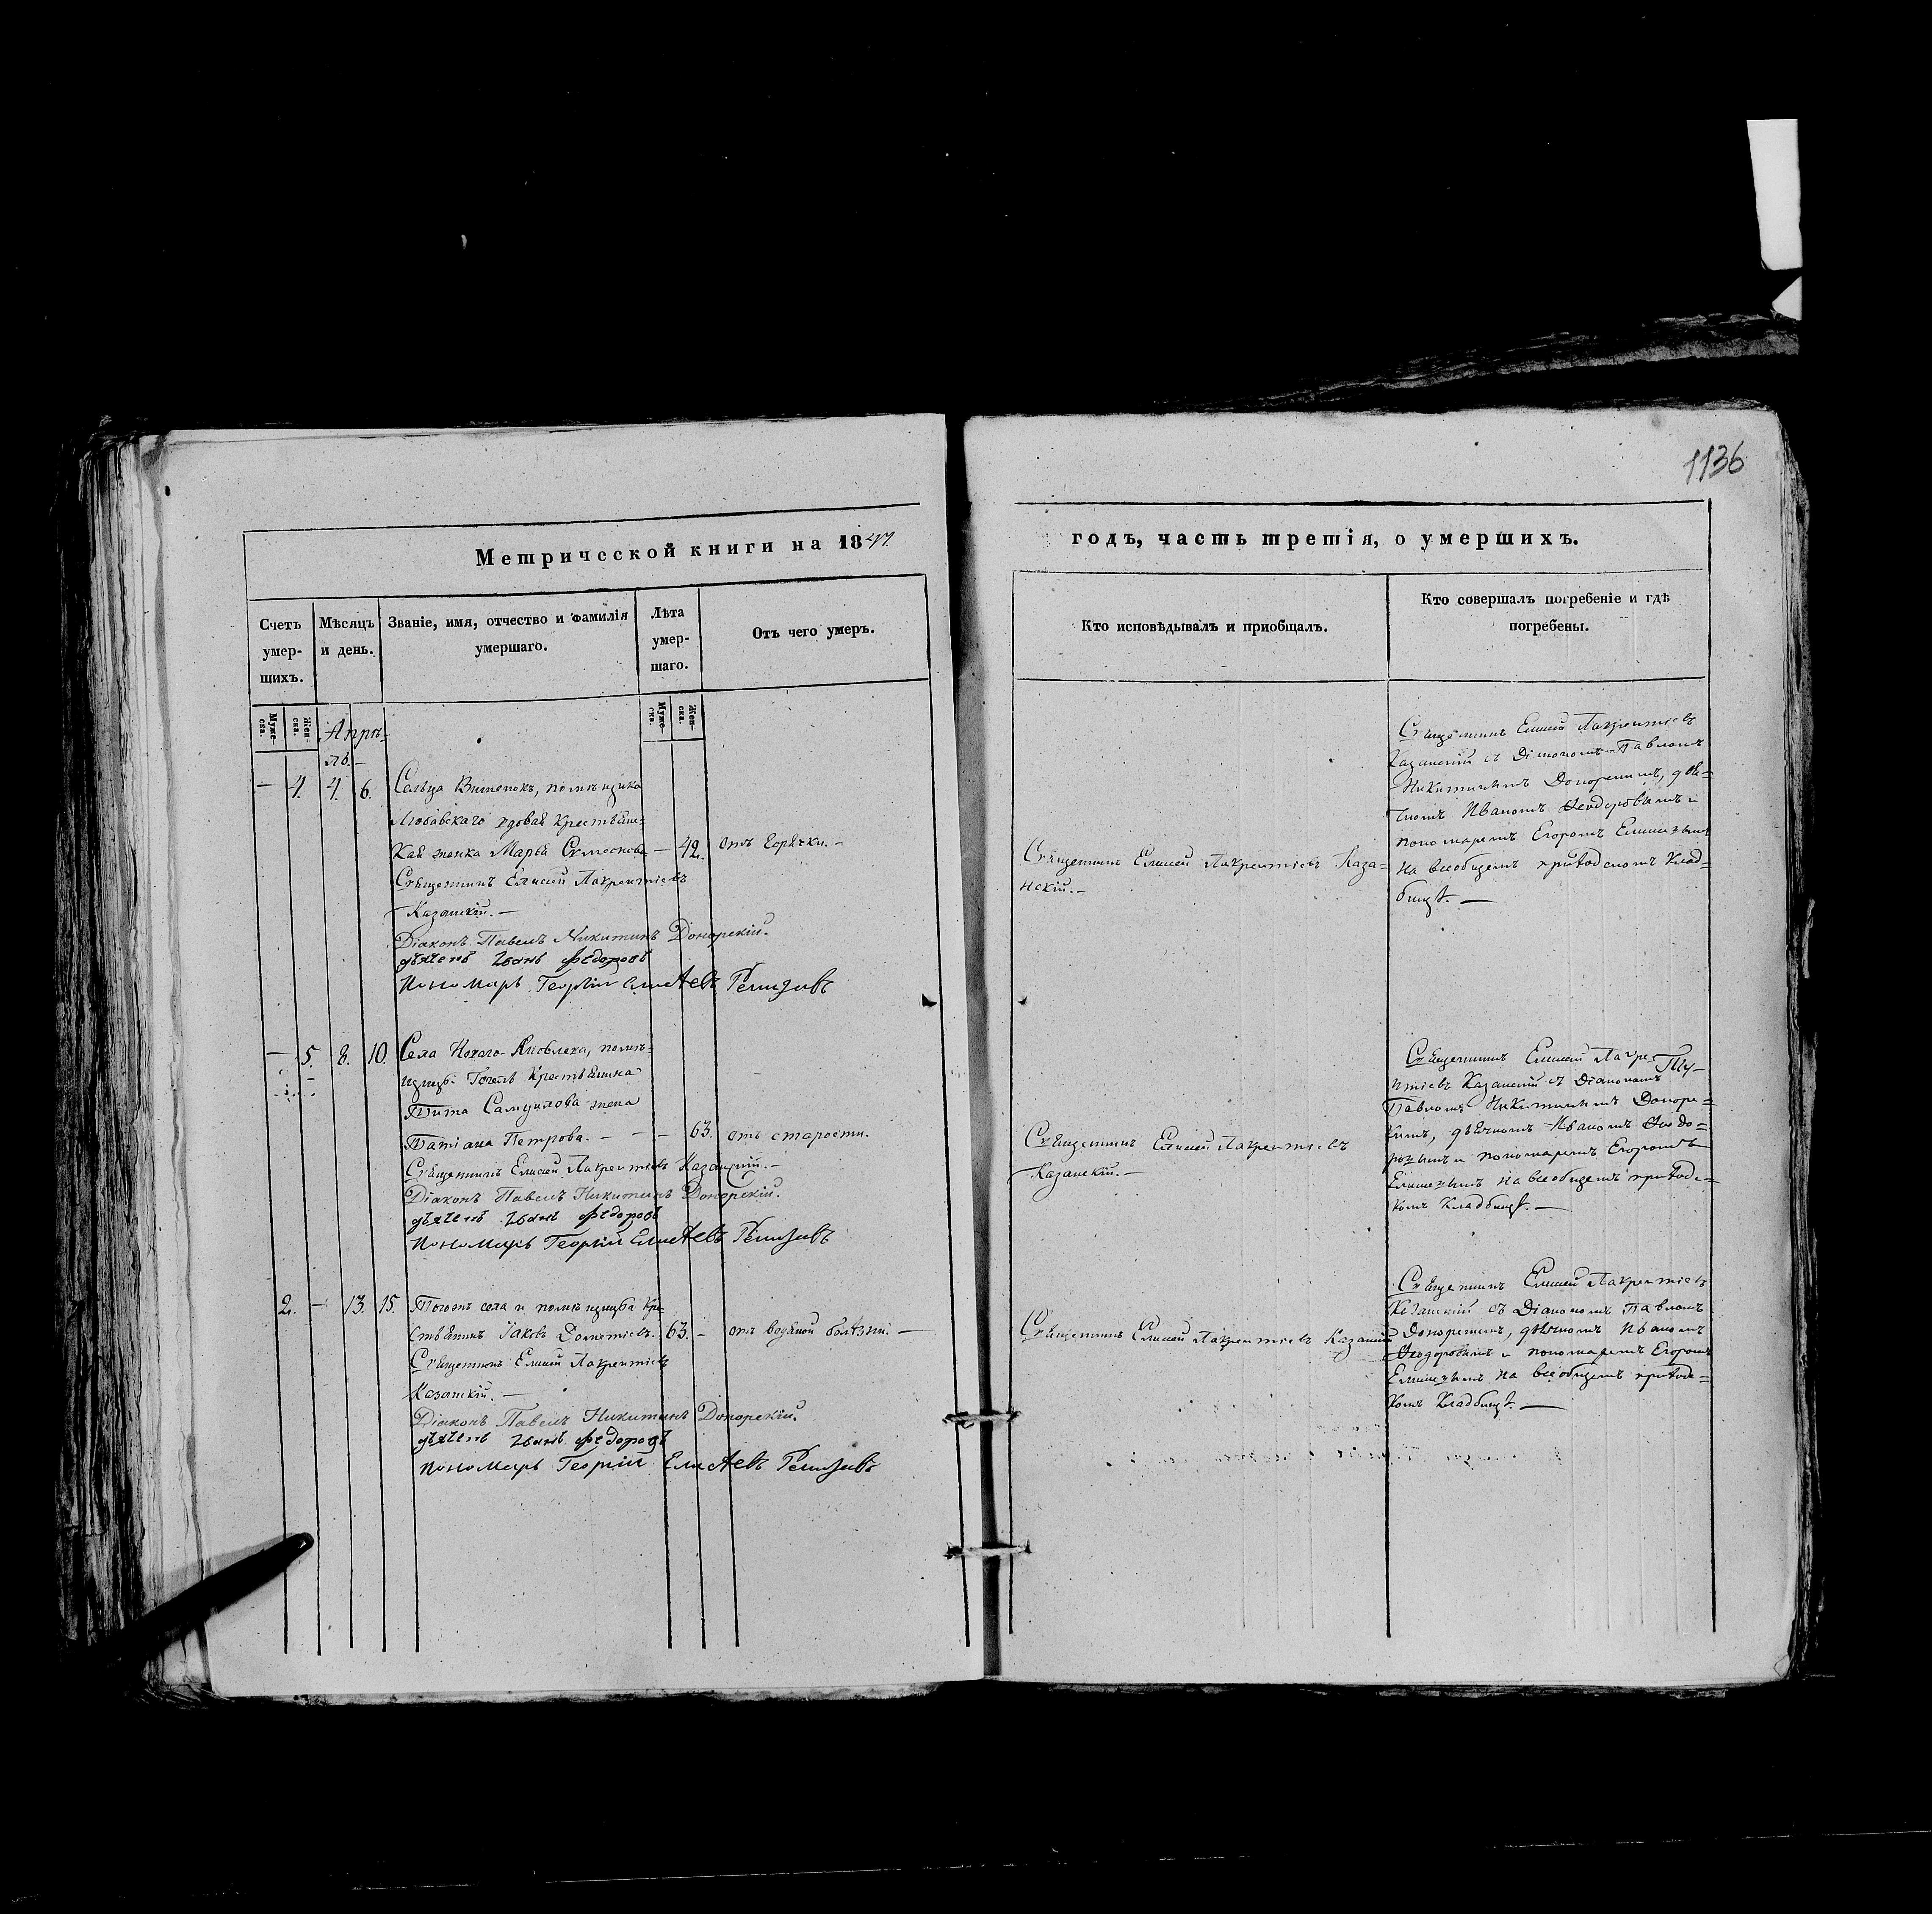 1136
Метрической книги на 1847.
годъ, часть третія, о умершихъ.
Счетъ умер-шихъ.
Мѣсяцъ и день.
Званіе, имя, отчество и фамилія умершаго.
Лѣта умер-шаго.
Отъ чего умеръ.
Кто исповѣдывалъ и приобщалъ.
Кто совершалъ погребеніе и гдѣ погребены.
Муже-ска.
Жен-ска.
Муже-ска.
Жен-ска.
Апрѣ-
ль.
— 4. 4. 6. Сельца помѣщика
вдовая крестьян-
кая женка Марья — 42. отъ горячки. —
Священникъ Елисей Лаврентіевъ
Казанскій. —
Діаконъ Павелъ Никитинъ Донорскій.
дьячекъ Іванъ Федоровъ
Пономарь Георгій Елисѣевъ Ремизовъ
Священникъ Елисей Лаврентіевъ Каза-
нскій. —
Священникъ Елисей Лаврентіевъ
Казанскій съ Діакономъ Павломъ
Никитинымъ Донорскимъ, дья-
чкомъ Иваномъ Феодоровымъ и
пономаремъ Егоромъ
на всеобщемъ приходскомъ клад-
бищѣ. —
— 5. 8. 10. Села помѣ-
щицы крестьянина
Тита Самуилова жена
Татіана Петрова. — — — 63. отъ старости.
Священникъ Елисей Лаврентіевъ Казанскій. —
Діаконъ Павелъ Никитинъ Донорскій.
дьячекъ Іванъ Федоровъ
Пономарь Георгій Елисѣевъ Ремизовъ
Священникъ Елисей Лаврентіевъ
Казанскій. —
Священникъ Елисей Лавре-
нтіевъ Казанскій съ Діакономъ
Павломъ Никитинымъ Донорс-
кимъ, дьячкомъ Иваномъ Феодо-
ровымъ и пономаремъ Егоромъ
на всеобщемъ приходс-
комъ кладбищѣ. —
2. — 13. 15. Тогожъ села и помѣщицы кре-
стьянинъ Іаковъ 63. — отъ водяной болѣзни. —
Священникъ Елисей Лаврентіевъ
Казанскій. —
Діаконъ Павелъ Никитинъ Донорскій.
дьячекъ Іванъ Федоровъ
Пономарь Георгій Елисѣевъ Ремизовъ
Священникъ Елисей Лаврентіевъ Казанскій
Священникъ Елисей Лаврентіевъ
Казанскій съ Діакономъ Павломъ
Донорскимъ, дьячкомъ Иваномъ
Феодоровымъ и пономаремъ Егоромъ
на всеобщемъ приходс-
комъ кладбищѣ. —